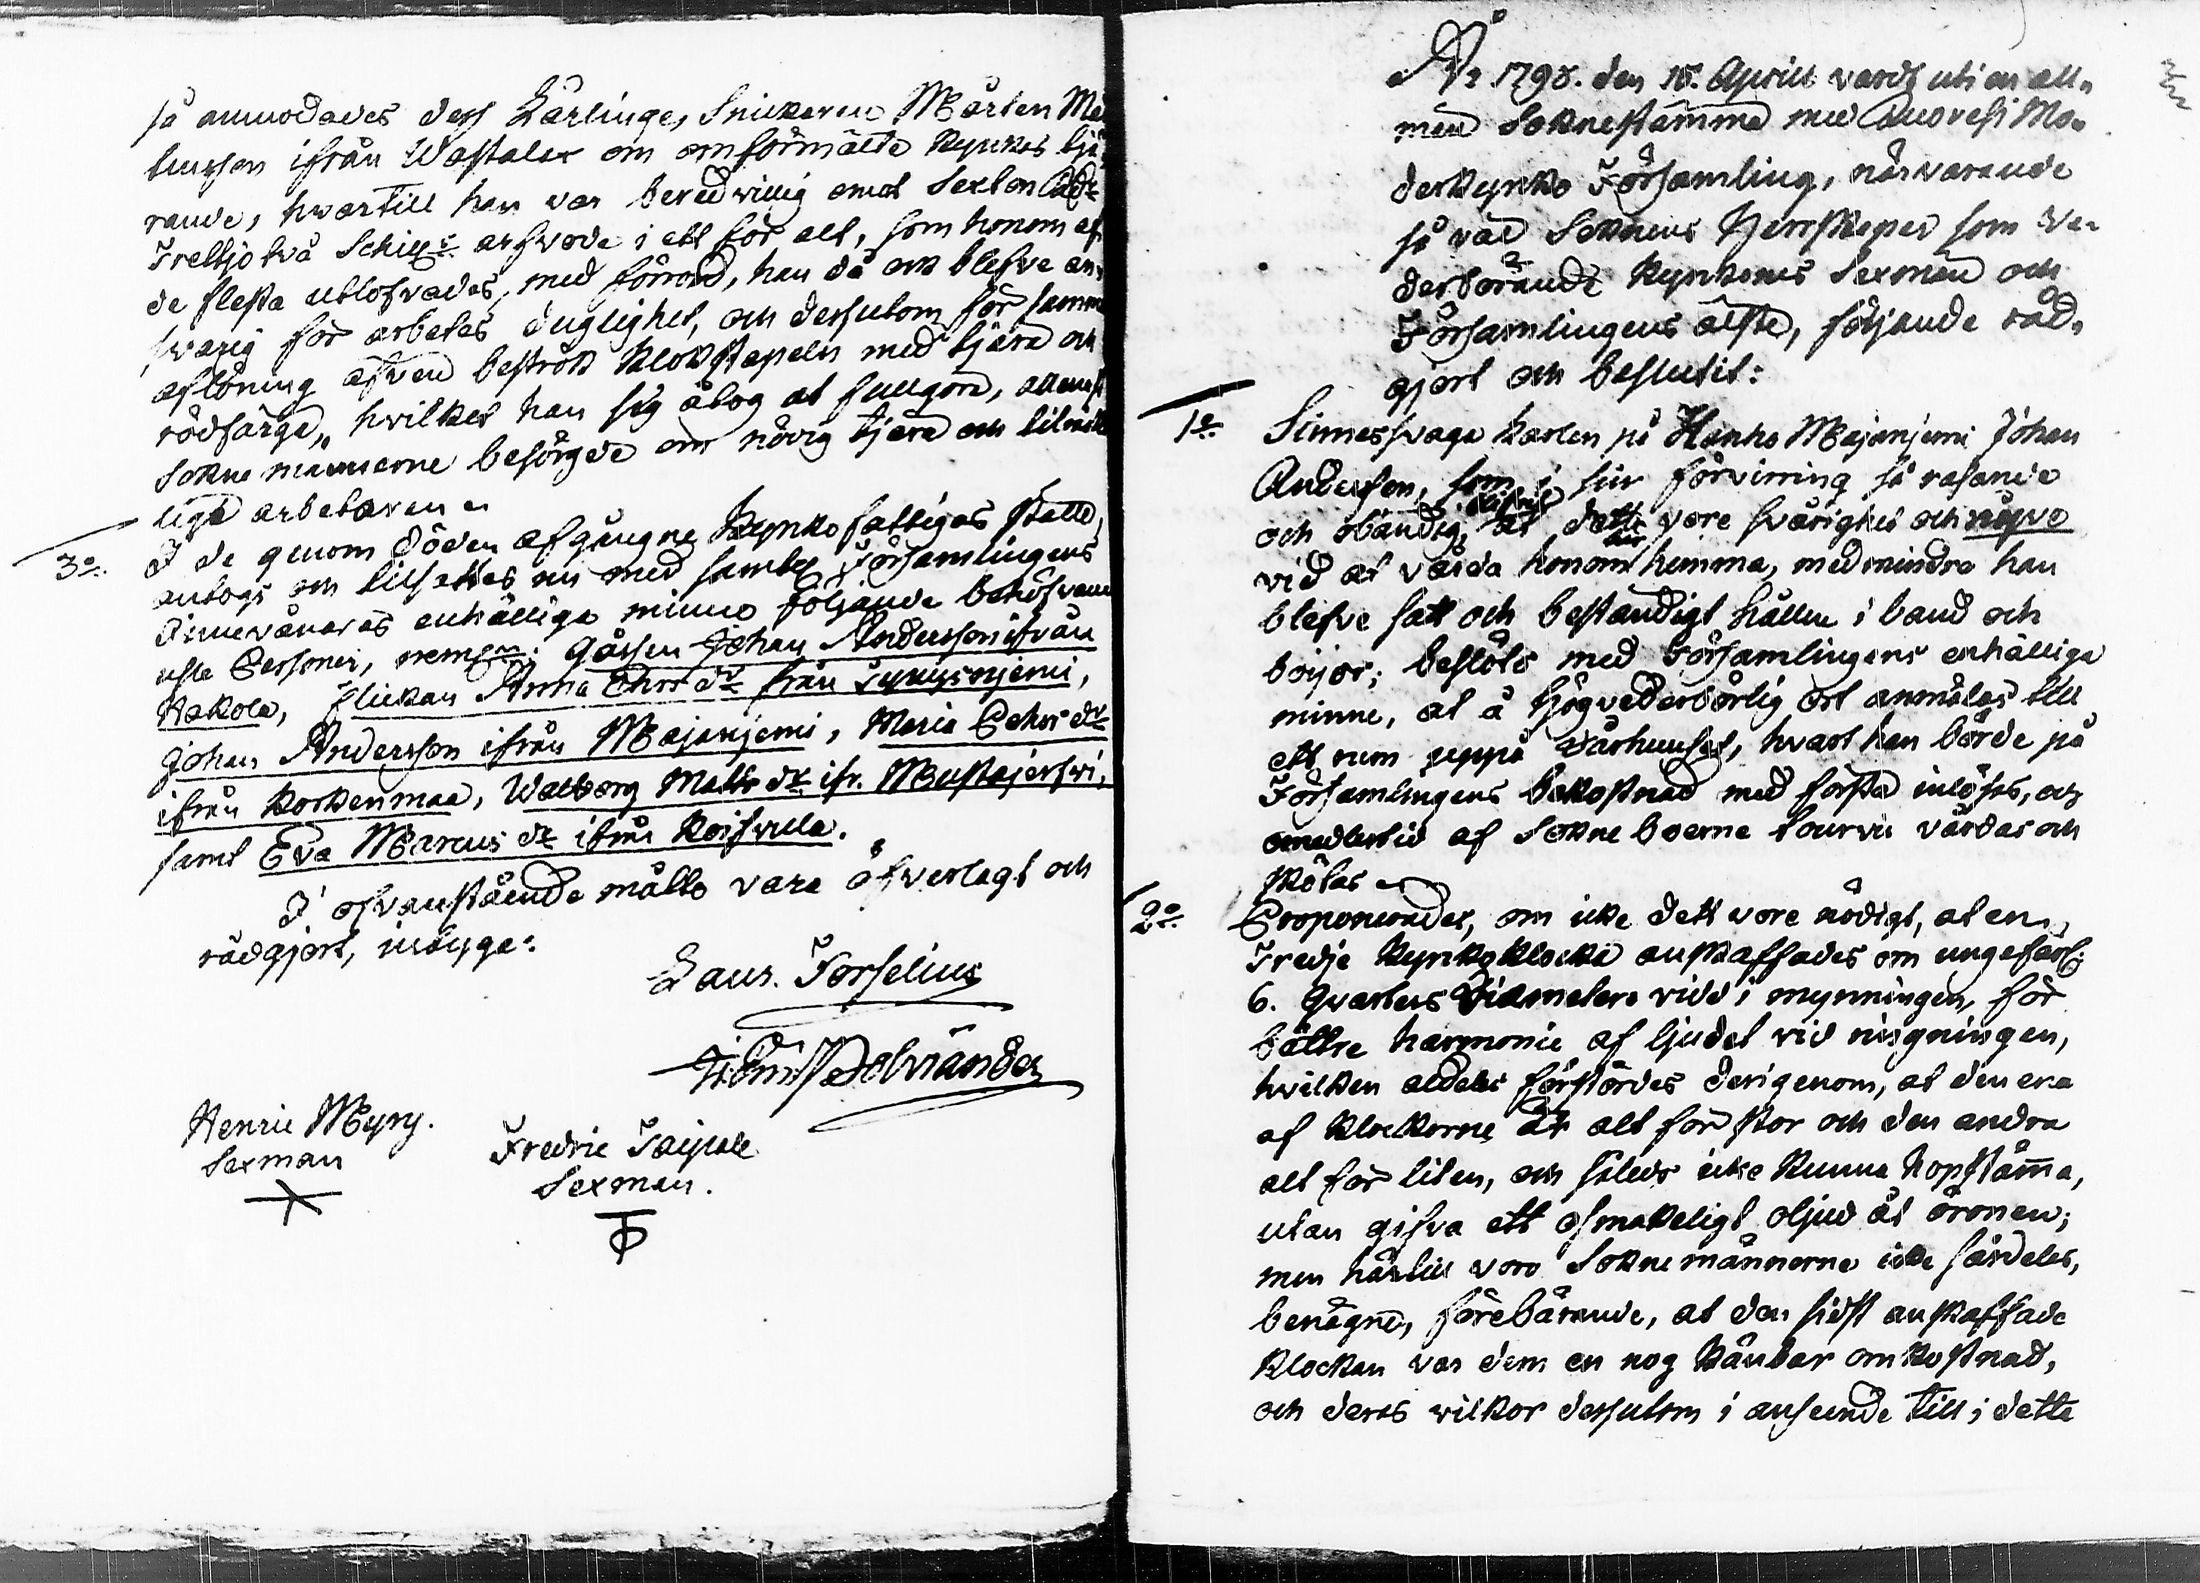 så anmodades dess Lärlinge, Snickaren Mårten
ifrån om omförmälte kyrkos
rande, hwartill han var beredwillig emot Sexton
Trettjotvå Schill:r arfvode i ett för alt, som honom af
de flesta utlofvades, med förord, han då ock blefve an-
svarig för arbetes duglighet, och dessutom för samma
aflöning äfven beströk klokstapeln med tjära och
rödfärga, hwilket han sig åtog at fullgöra, allenast
Sokne männerne besörgde om nödig tjära och
lige arbetaren.
3o. I de genom döden afgångne kyrko fattigas ställe,
antogs och tilsattes nu med samtel. Församlingens
Innevånares enhälliga minne följande behöfvand
uste Personer, neml:n: gåssen Johan Andersson ifrån
Hakola, flickan Anna dr från
Johan Andersson ifrån Majanjemi, Maria dr
ifrån Korkenmaa, Walborg Matts dr ifr. Mustajerfvi,
samt Eva Marcus dr ifrån Koifvula.
I ofvanstående måtto vara öfverlagt och
rådgjort, intyga:
Laur. Forselius
Henric Myry.
Sexman
Fredric Taipale
Sexman.
År 1798. den 15. Aprill vardt uti en all-
män Soknestämma med Moderkyrko
Församling, närvarande
så väl Soknens Herrskaper som Ve-
derbörande Kyrkones Sexmän och
Församlingens älste, följande råd-
gjort och beslutit:
1o. Sinnessvaga karlen på Hanho Majanjemi Johan
Andersson, som i sin förvirring så rasande
och obändig, at dett vore svårighet och
vid at vårda honom hemma, med mindre han
blefve satt och beständigt hållen i band och
bojor; beslöts med Församlingens enhälliga
minne, at å högvederbörlig ort anmälas till
ett rum uppå Dårhuuset, hvart han börde på
Församlingens bekostnad med första inlösas, och
emedlertid af Sokne boerne tourvis vårdas och
skötas
2o. Proponerades, om icke dett vore nödigt, at en
Tredje Kyrko klocka anskaffades om ungefärl:
6. qvarters Diameters vidd i mynningen, för
bättre harmonie af ljudet vid ringningen,
hvilken aldeles förstördes derigenom, at den ena
af klockorne är alt för stor och den andra
alt för liten, och således icke kunna hopstämma,
utan gifva ett osmakeligt oljud åt öronen;
men härtill voro Soknemännerne icke särdeles,
benägne, förebärande, at den sidst anskaffade
klockan var dem en nog känbar omkostnad,
och deras vilkor dessutom i anseende till; detta